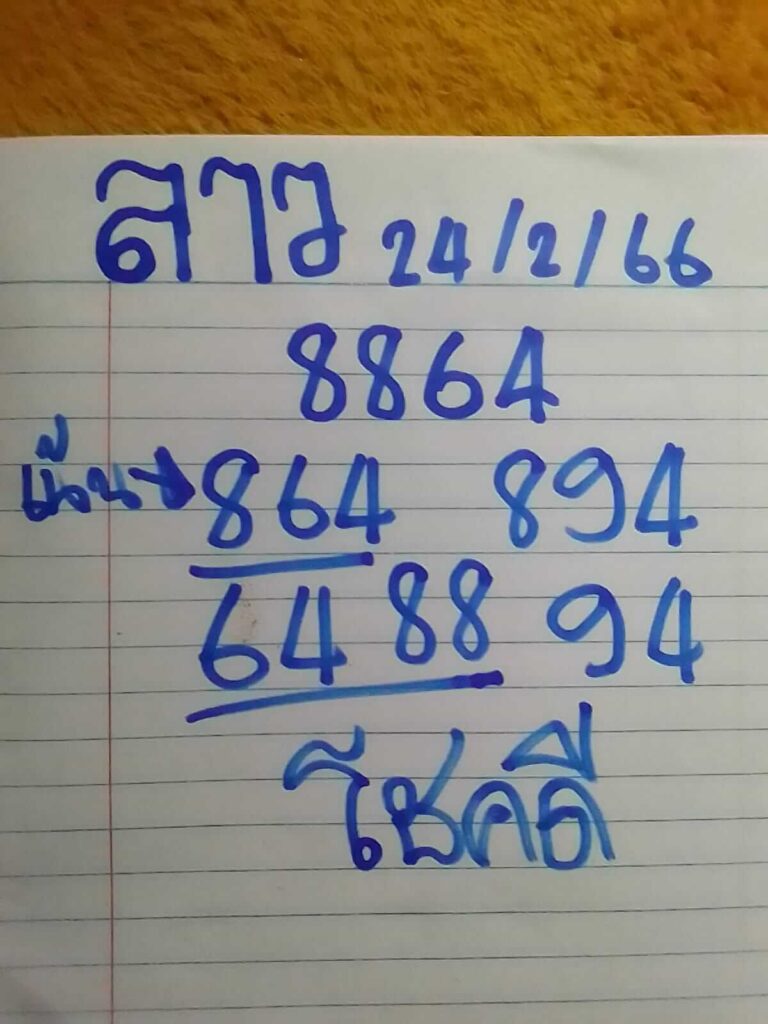 ลาว 24/2/66
8864
เน้น 864 894
64 88 94
โชคดี